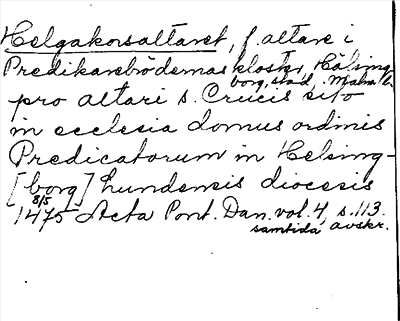 Helgakorsaltaret, f. altare i
Predikarebrödernas kloster, Hälsing-
borg, stad, Malm. l.
pro altari s. Crucis sito
in ecclesia domus ordinis
Predicatorum in Helsing-
[borg] Lundensis diocesis
1475 8/5 Acta Pont. Dan. vol. 4, s. 113.
samtida avskr.